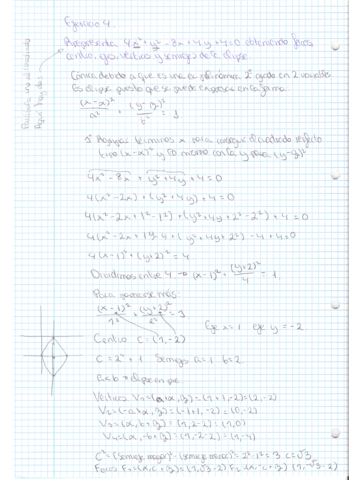 Ejercicio 4.
Representa 4x² + y² - 8x + 4y + 4 = 0 obteniendo focos
centro, ejes, vértices y semiejes de la elipse.
Cónica debido a que es una ec. polinómica 2º grado en 2 variables
Es elipse puesto que se puede expresar en la forma
(x-α)²/a² + (y-β)²/b² = 1
1º Agrupar términos x para conseguir el cuadrado perfecto
tipo (x-α)² y lo mismo con la y para (y-β)²
4x² - 8x + y² + 4y + 4 = 0
4(x² - 2x) + (y² + 4y) + 4 = 0
4(x² - 2x + 1² - 1²) + (y² + 4y + 2² - 2²) + 4 = 0
4(x² - 2x + 1) - 4 + (y² + 4y + 2²) - 4 + 4 = 0
4(x-1)² + (y+2)² = 4
Dividimos entre 4 → (x-1)² + (y+2)²/4 = 1
Para hacerse más:
(x-1)²/1² + (y+2)²/2² = 1
Eje x = 1 eje y = -2
Centro C = (1, -2)
Semiejes a = 1 b = 2
a<b → elipse en pie
Vértices V₁ = (α+a, β) = (1+1, -2) = (2, -2)
V₂ = (-a+α, β) = (-1+1, -2) = (0, -2)
V₃ = (α, b+β) = (1, 2-2) = (1, 0)
V₄ = (α, -b+β) = (1, -2-2) = (1, -4)
C² = (semieje mayor)² - (semieje menor)² = 2² - 1² = 3 c = √3